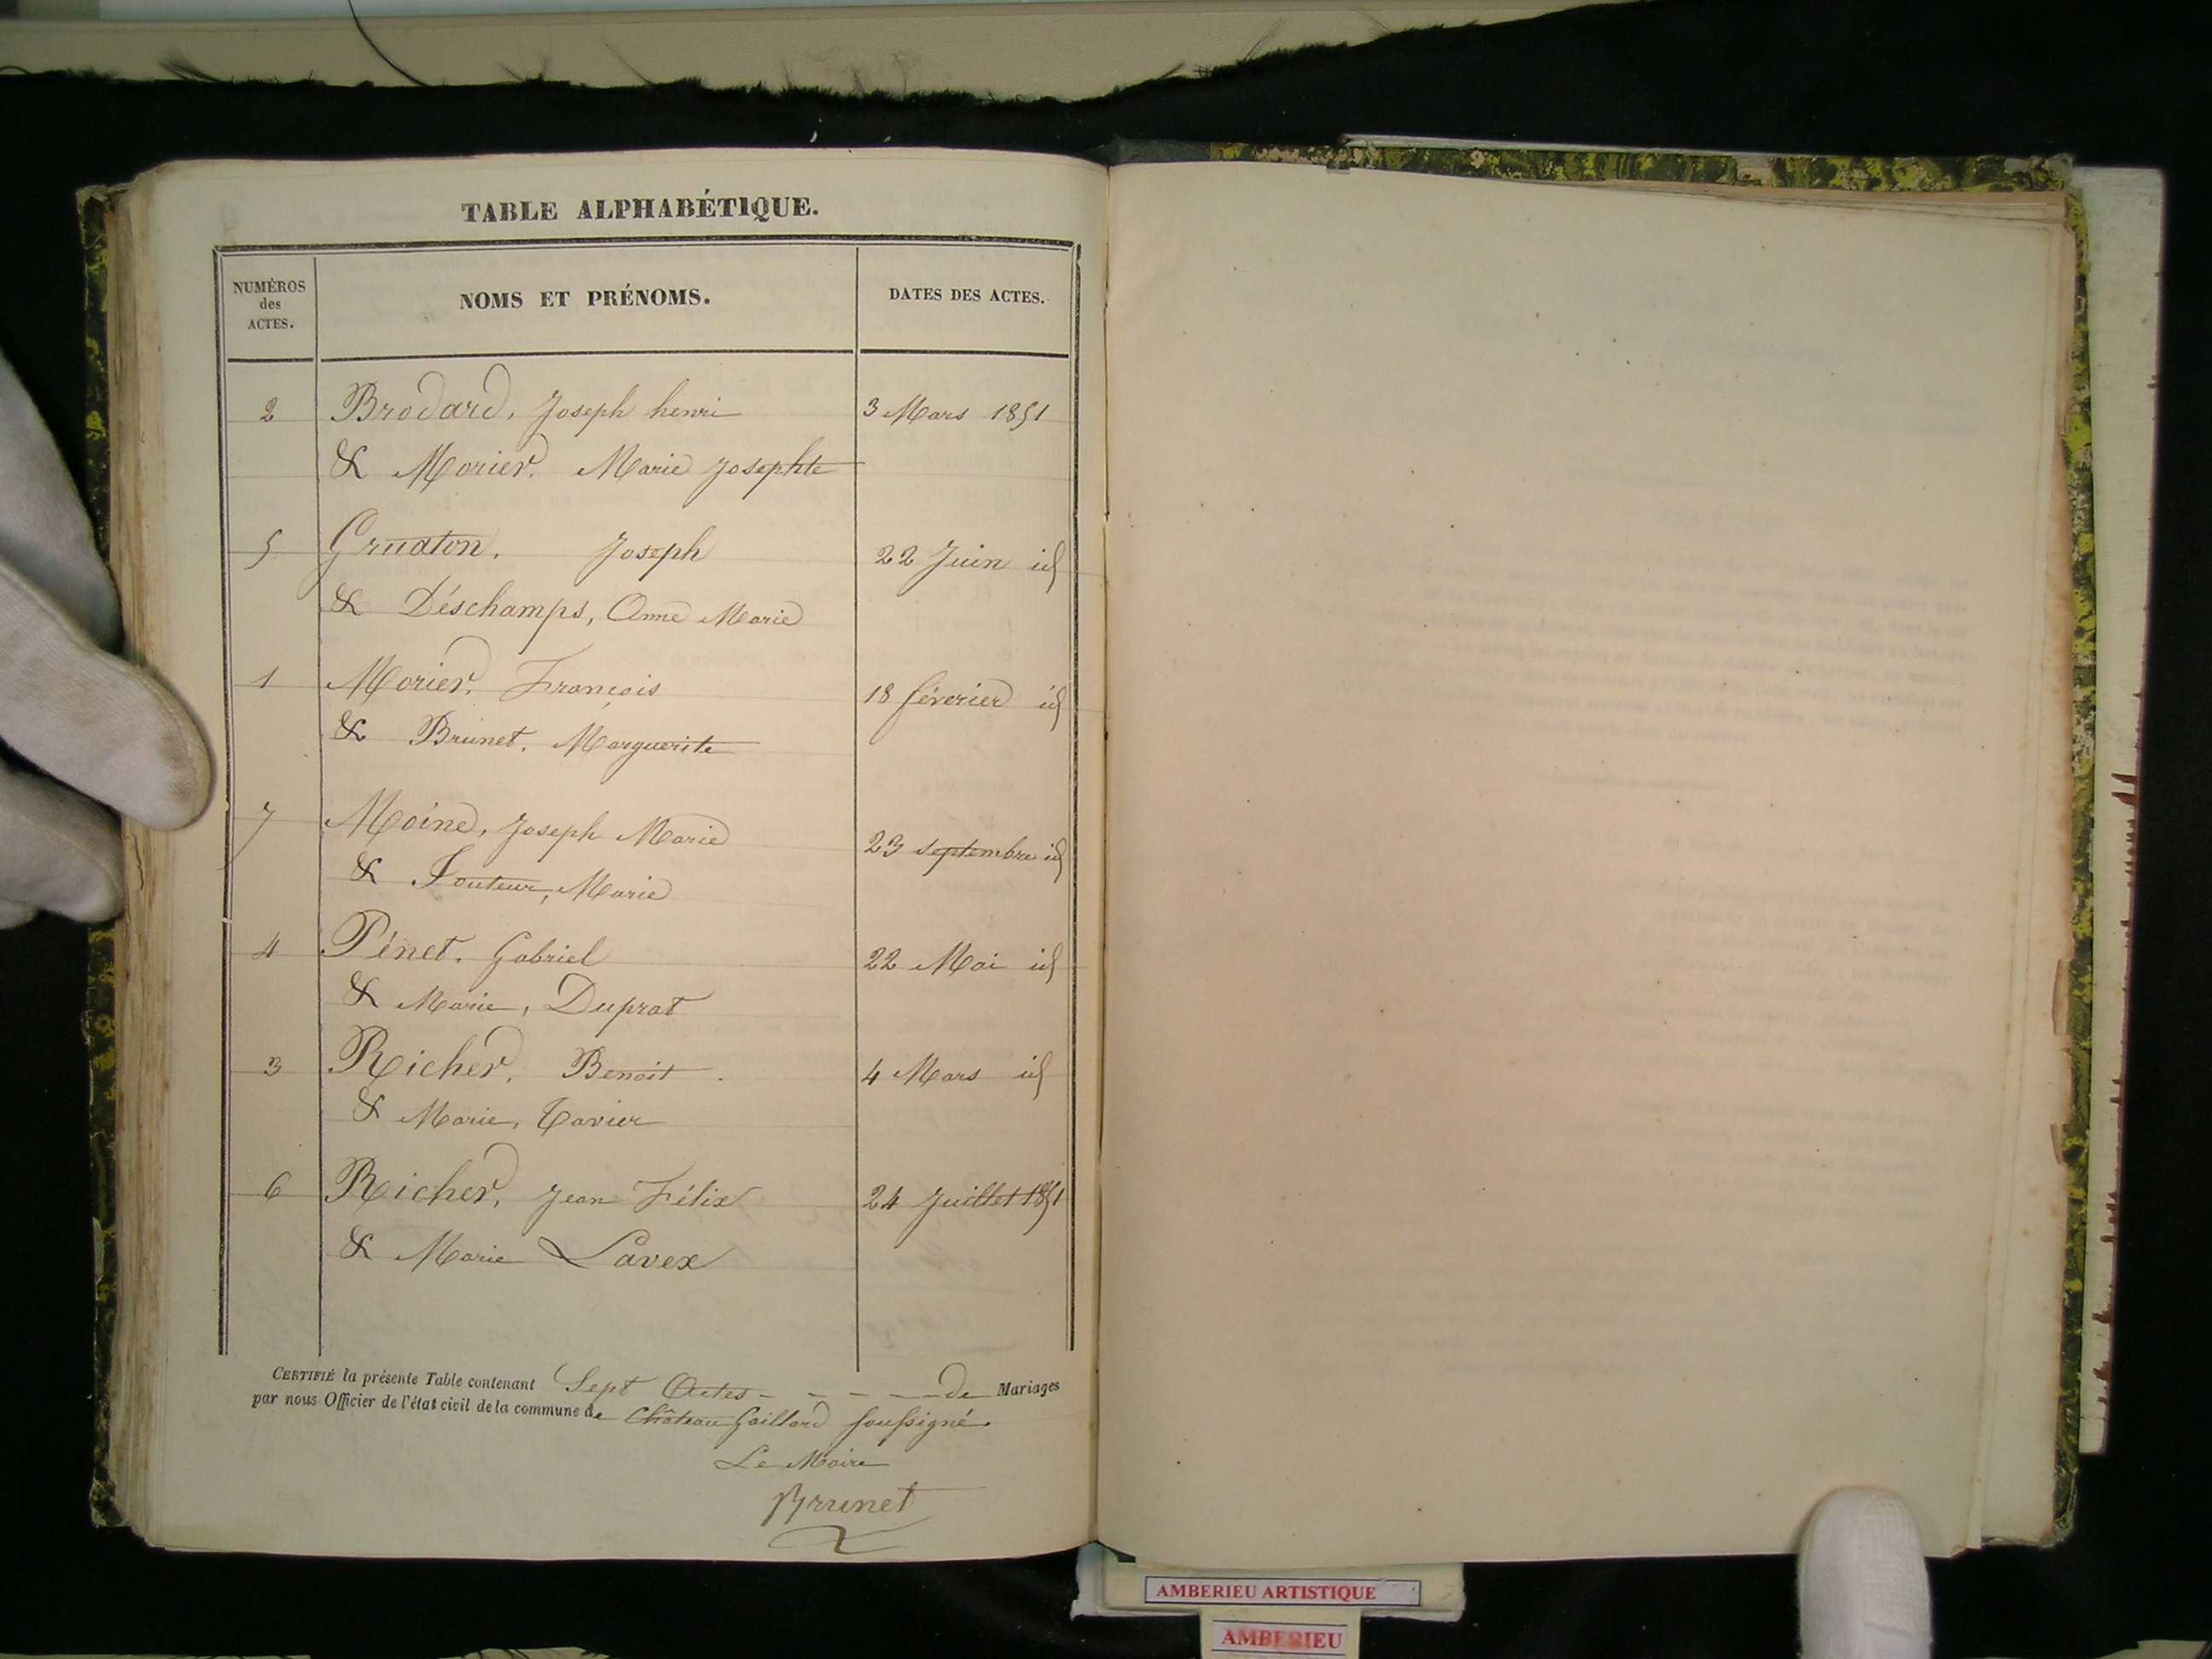 TABLE ALPHABÉTIQUE.
NUMÉROS
des
ACTES.
NOMS ET PRÉNOMS.
DATES DES ACTES.
2 Brodard, Joseph henri 3 Mars 1851
& Morier. Marie Josephte
5 Gruaton. Joseph 22 Juin id
& Déschamps, Anne Marie
1 Morier. François 18 féverier id
& Brunet. Marguerite
7 Moine, Joseph Marie 23 septembre id
& Fouteur, Marie
4 Pénet. Gabriel 22 Mai id
& Marie, Duprat
3 Richer, Benoit. 4 Mars id
& Marie, Tavier
6 Richer, Jean Félix 24 Juillet 1851
& Marie Lavex
CERTIFIÉ la présente Table contenant Sept Actes - - - - de Mariages
par nous Officier de l'état civil de la commune de Château Gaillard soussigné
Le Maire
Brunet
AMBERIEU ARTISTIQUE
AMBERIEU